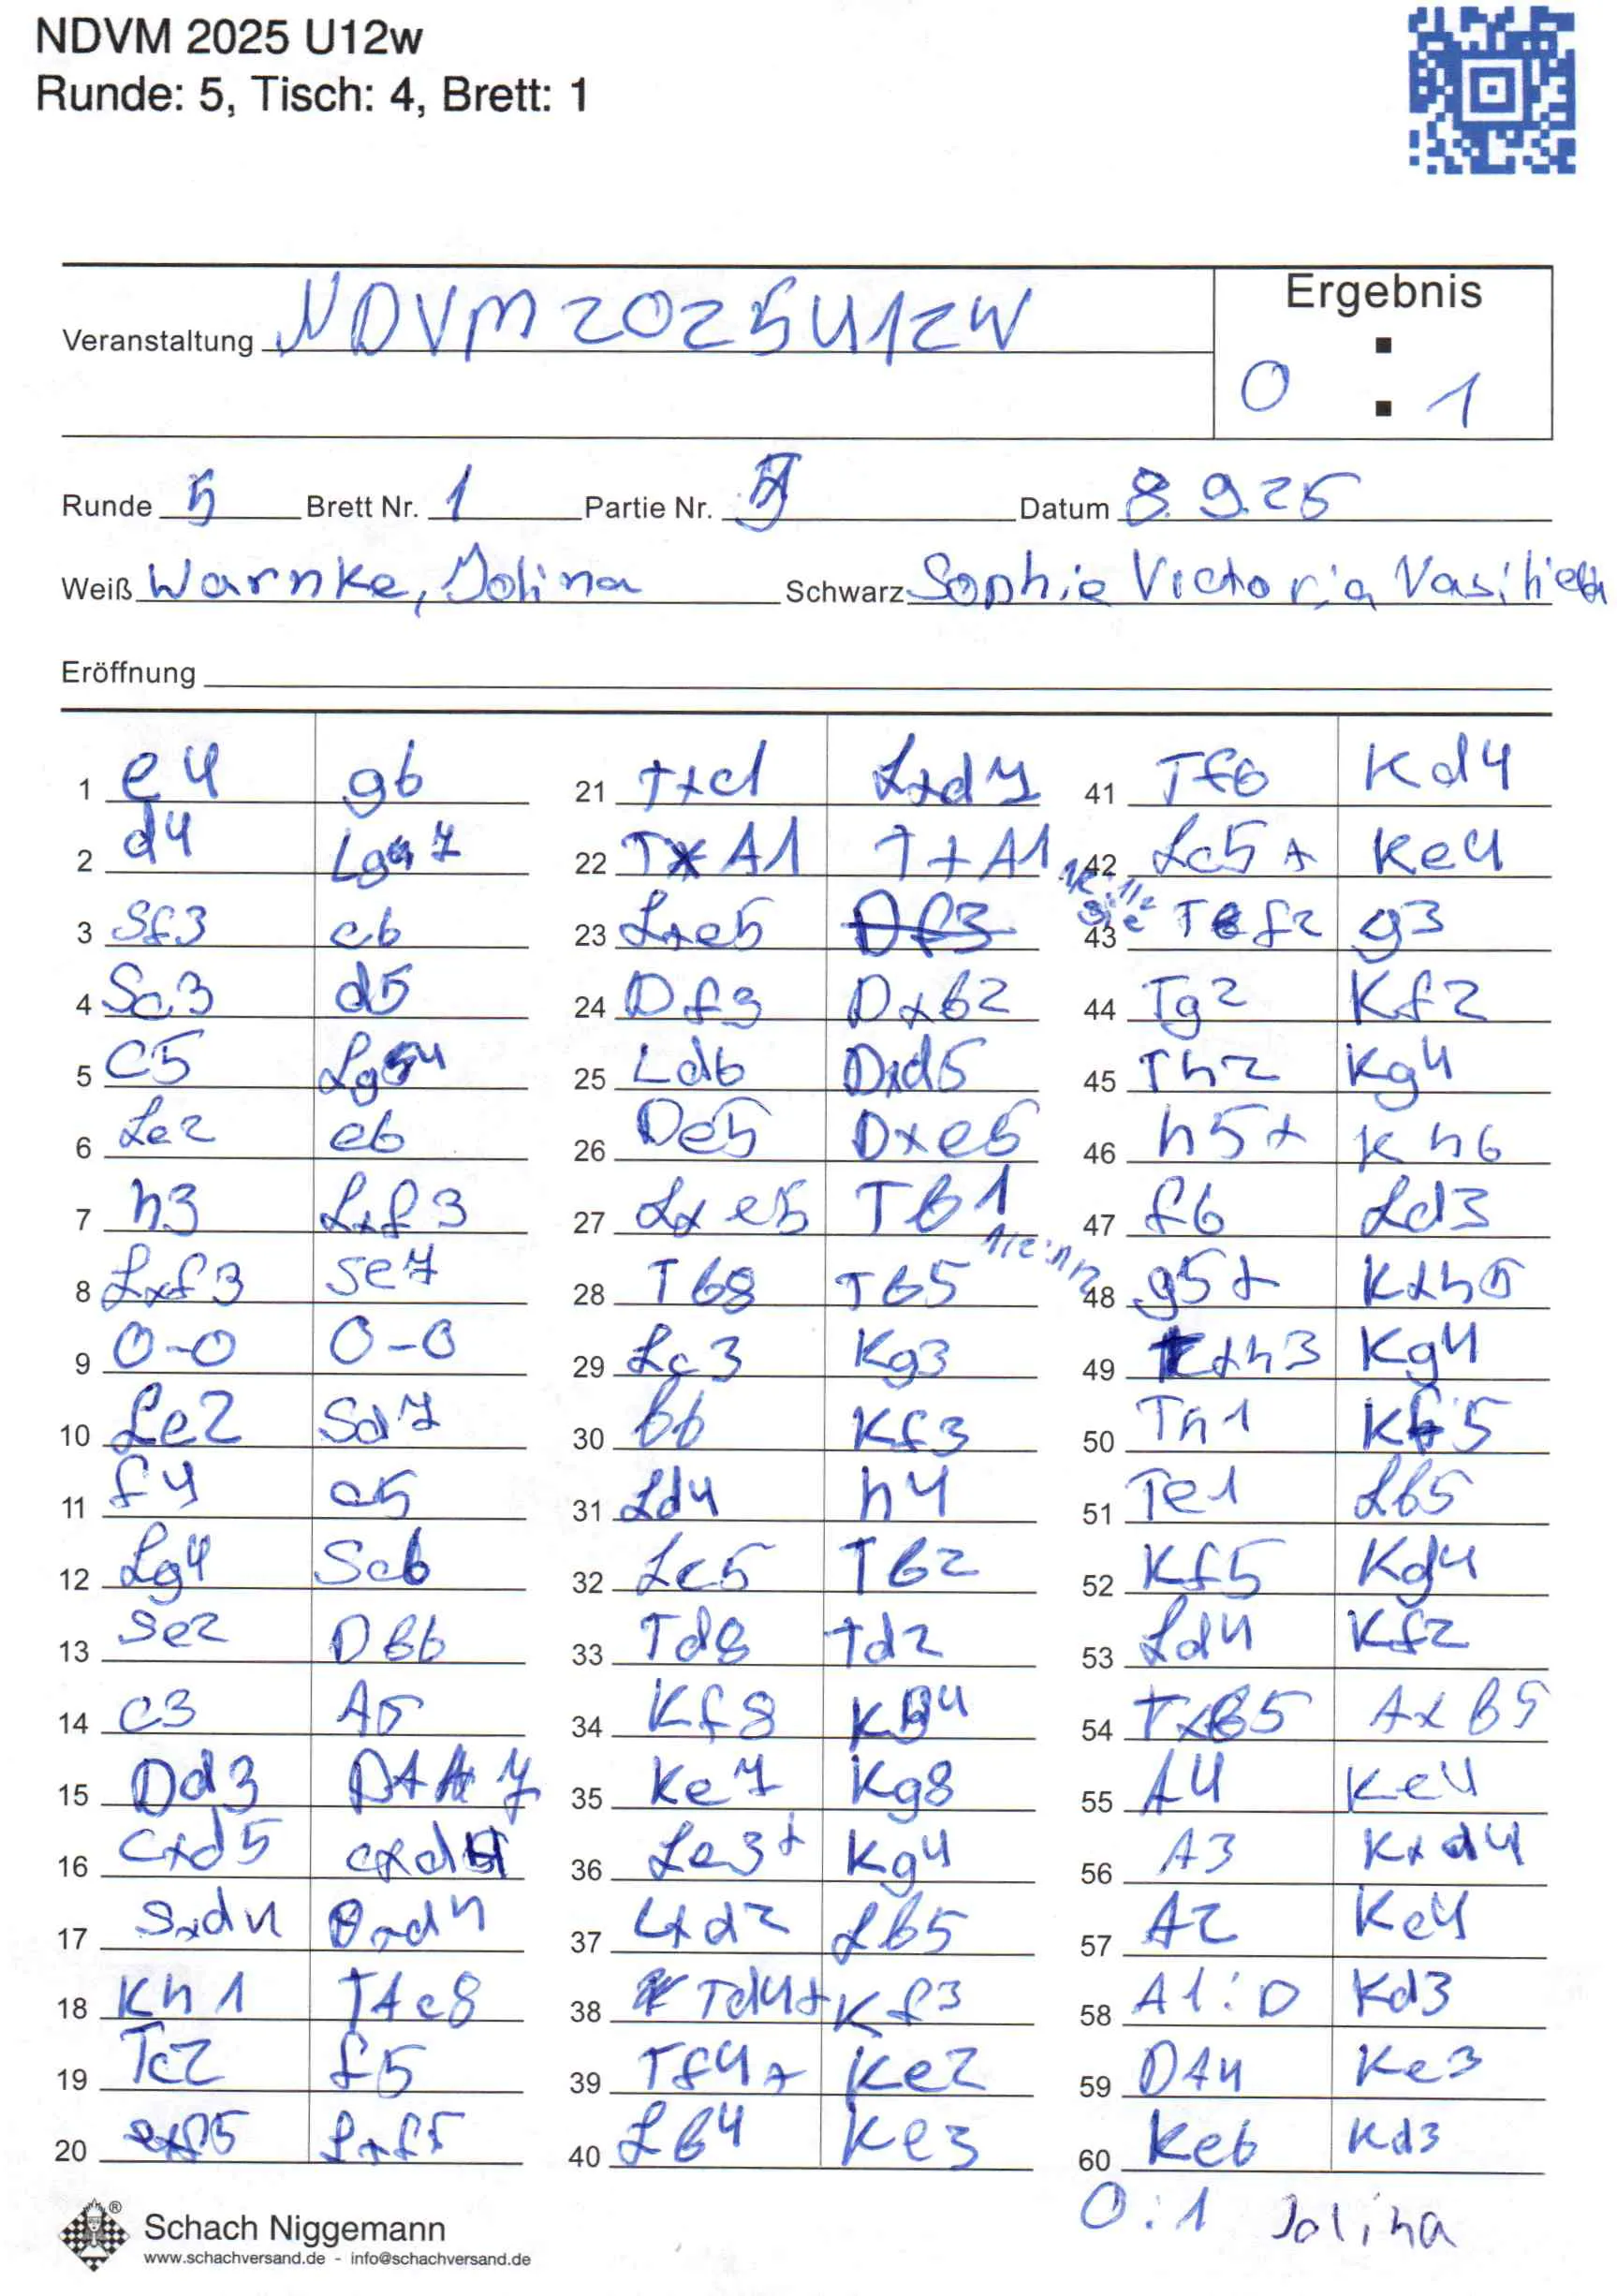 NDVM 2025 U12w
Runde: 5, Tisch: 4, Brett: 1
Veranstaltung NDVM 2025 U12W
Ergebnis
0 : 1
Runde 5 Brett Nr. 1 Partie Nr. 5 Datum 8.9.25
Weiß Warnke, Jolina Schwarz Sophie Victoria
Eröffnung
1 e4 g6
2 d4 Lg7
3 Sf3 c6
4 Sc3 d5
5 C5 Lg4
6 Le2 e6
7 h3 Lxf3
8 Lxf3 Se7
9 0-0 0-0
10 Le2 Sd7
11 f4 c5
12 Lg4 Sc6
13 Se2 Db6
14 c3 A5
15 Dd3
16 Cxd5 cxd4
17 Sxd4 Dxd4
18 Kh1 TAc8
19 Tc2 f5
20 exf5 Lxf5
21 Txc1 Lxd7
22 TxA1 T+A1
23 Lxe5 Df3
24 Df3 Dxb2
25 Ld6 Dxd5
26 De5 Dxe5
27 Lxe5 Tb1
1/2:1/2
28 Tb8 Tb5
29 Lc3 Kg3
30 b6 Kf3
31 Ld4 h4
32 Lc5 Tb2
33 Td8 Td2
34 Kf8 Kg4
35 Ke7 Kg8
36 Le3+ Kg4
37 Lxd2 Lb5
38 Td4+ Kf3
39 Tf4+ Ke2
40 Lb4 Ke3
41 Tf6 Kd4
42 Lc5+ Ke4
1/2:1/2
Sie
43 Tf2 g3
44 Tg2 Kf2
45 Th2 Kg4
46 h5+ Kh6
47 f6 Ld3
48 g5+ Kxh5
49 Txh3 Kg4
50 Th1 Kf5
51 Te1 Lb5
52 Kf5 Kg4
53 Ld4 Kf2
54 Txb5 Axb5
55 A4 Ke4
56 A3 Kxd4
57 A2 Ke4
58 A1:D Kd3
59 DA4 Ke3
60 Ke6 Kd3
0:1 Jolina
Schach Niggemann
www.schachversand.de - info@schachversand.de